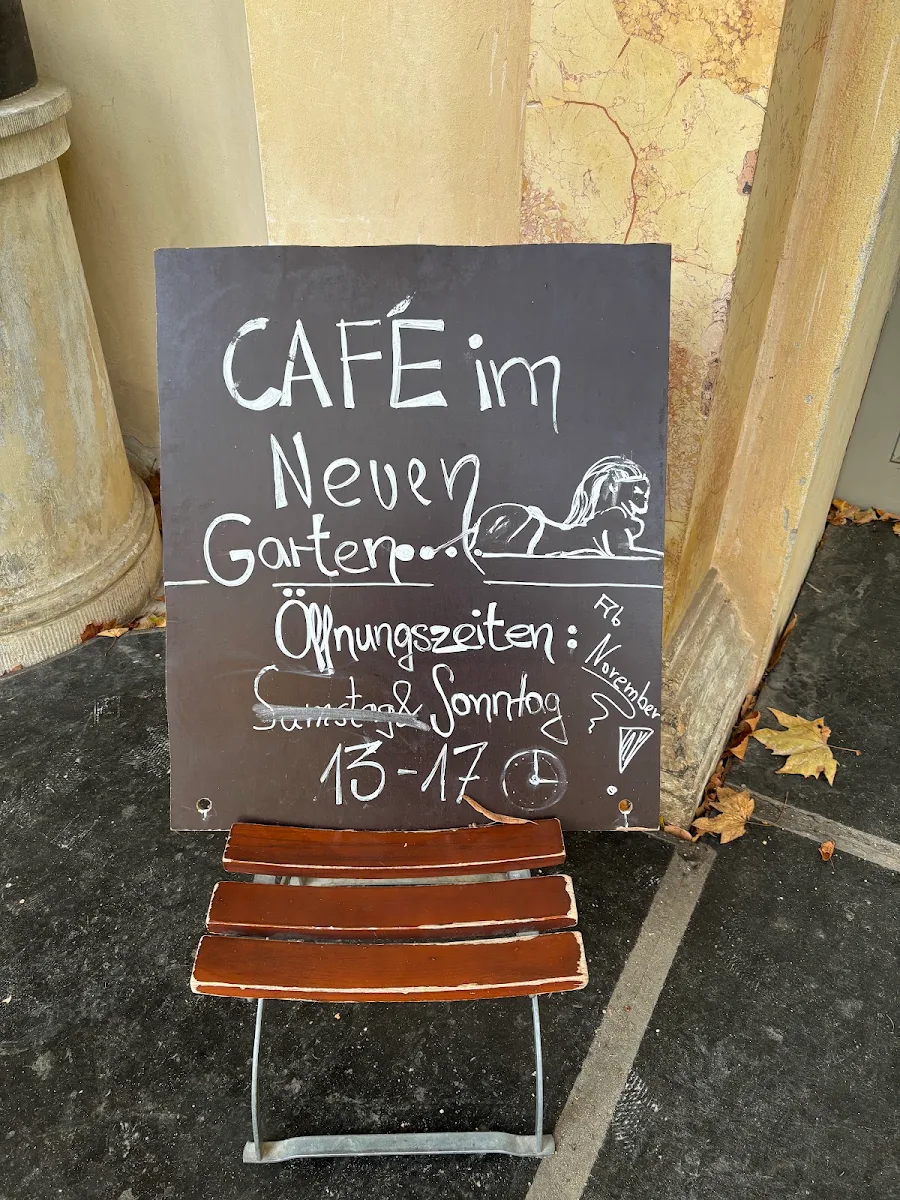 CAFÉ im
Neuen
Garten...
Öffnungszeiten:
Samstag & Sonntag
13-17
Ab
November
!